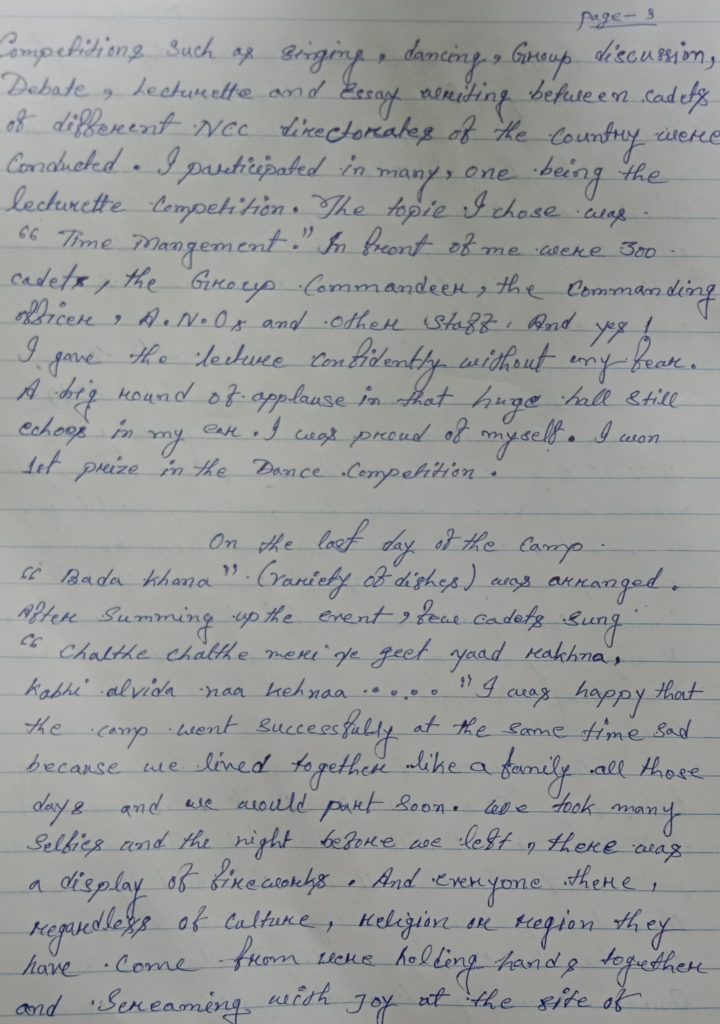 page-3
Competitions such as singing, dancing, Group discussion,
Debate, Lecturette and Essay writing between cadets
of different NCC directorates of the country were
Conducted. I participated in many, one being the
lecturette Competition. The topic I chose was
"Time Mangement." In front of me were 300
cadets, the Group Commandeer, the Commanding
officer, A.N.Os and other staff. And yes!
I gave the lecture confidently without any fear.
A big round of applause in that huge hall still
echoes in my ear. I was proud of myself. I won
1st prize in the Dance Competition.
On the last day of the Camp
"Bada Khana" (variety of dishes) was arranged.
After Summing up the event, few cadets sung
"Chalthe chalthe meri ye geet yaad rakhna,
Kabhi alvida naa kehnaa ......" I was happy that
the camp went successfully at the same time sad
because we lived together like a family all those
days and we would part soon. We took many
Selfies and the night before we left, there was
a display of fireworks. And everyone there,
regardless of culture, religion or region they
have come from were holding hands together
and Screaming with Joy at the site of